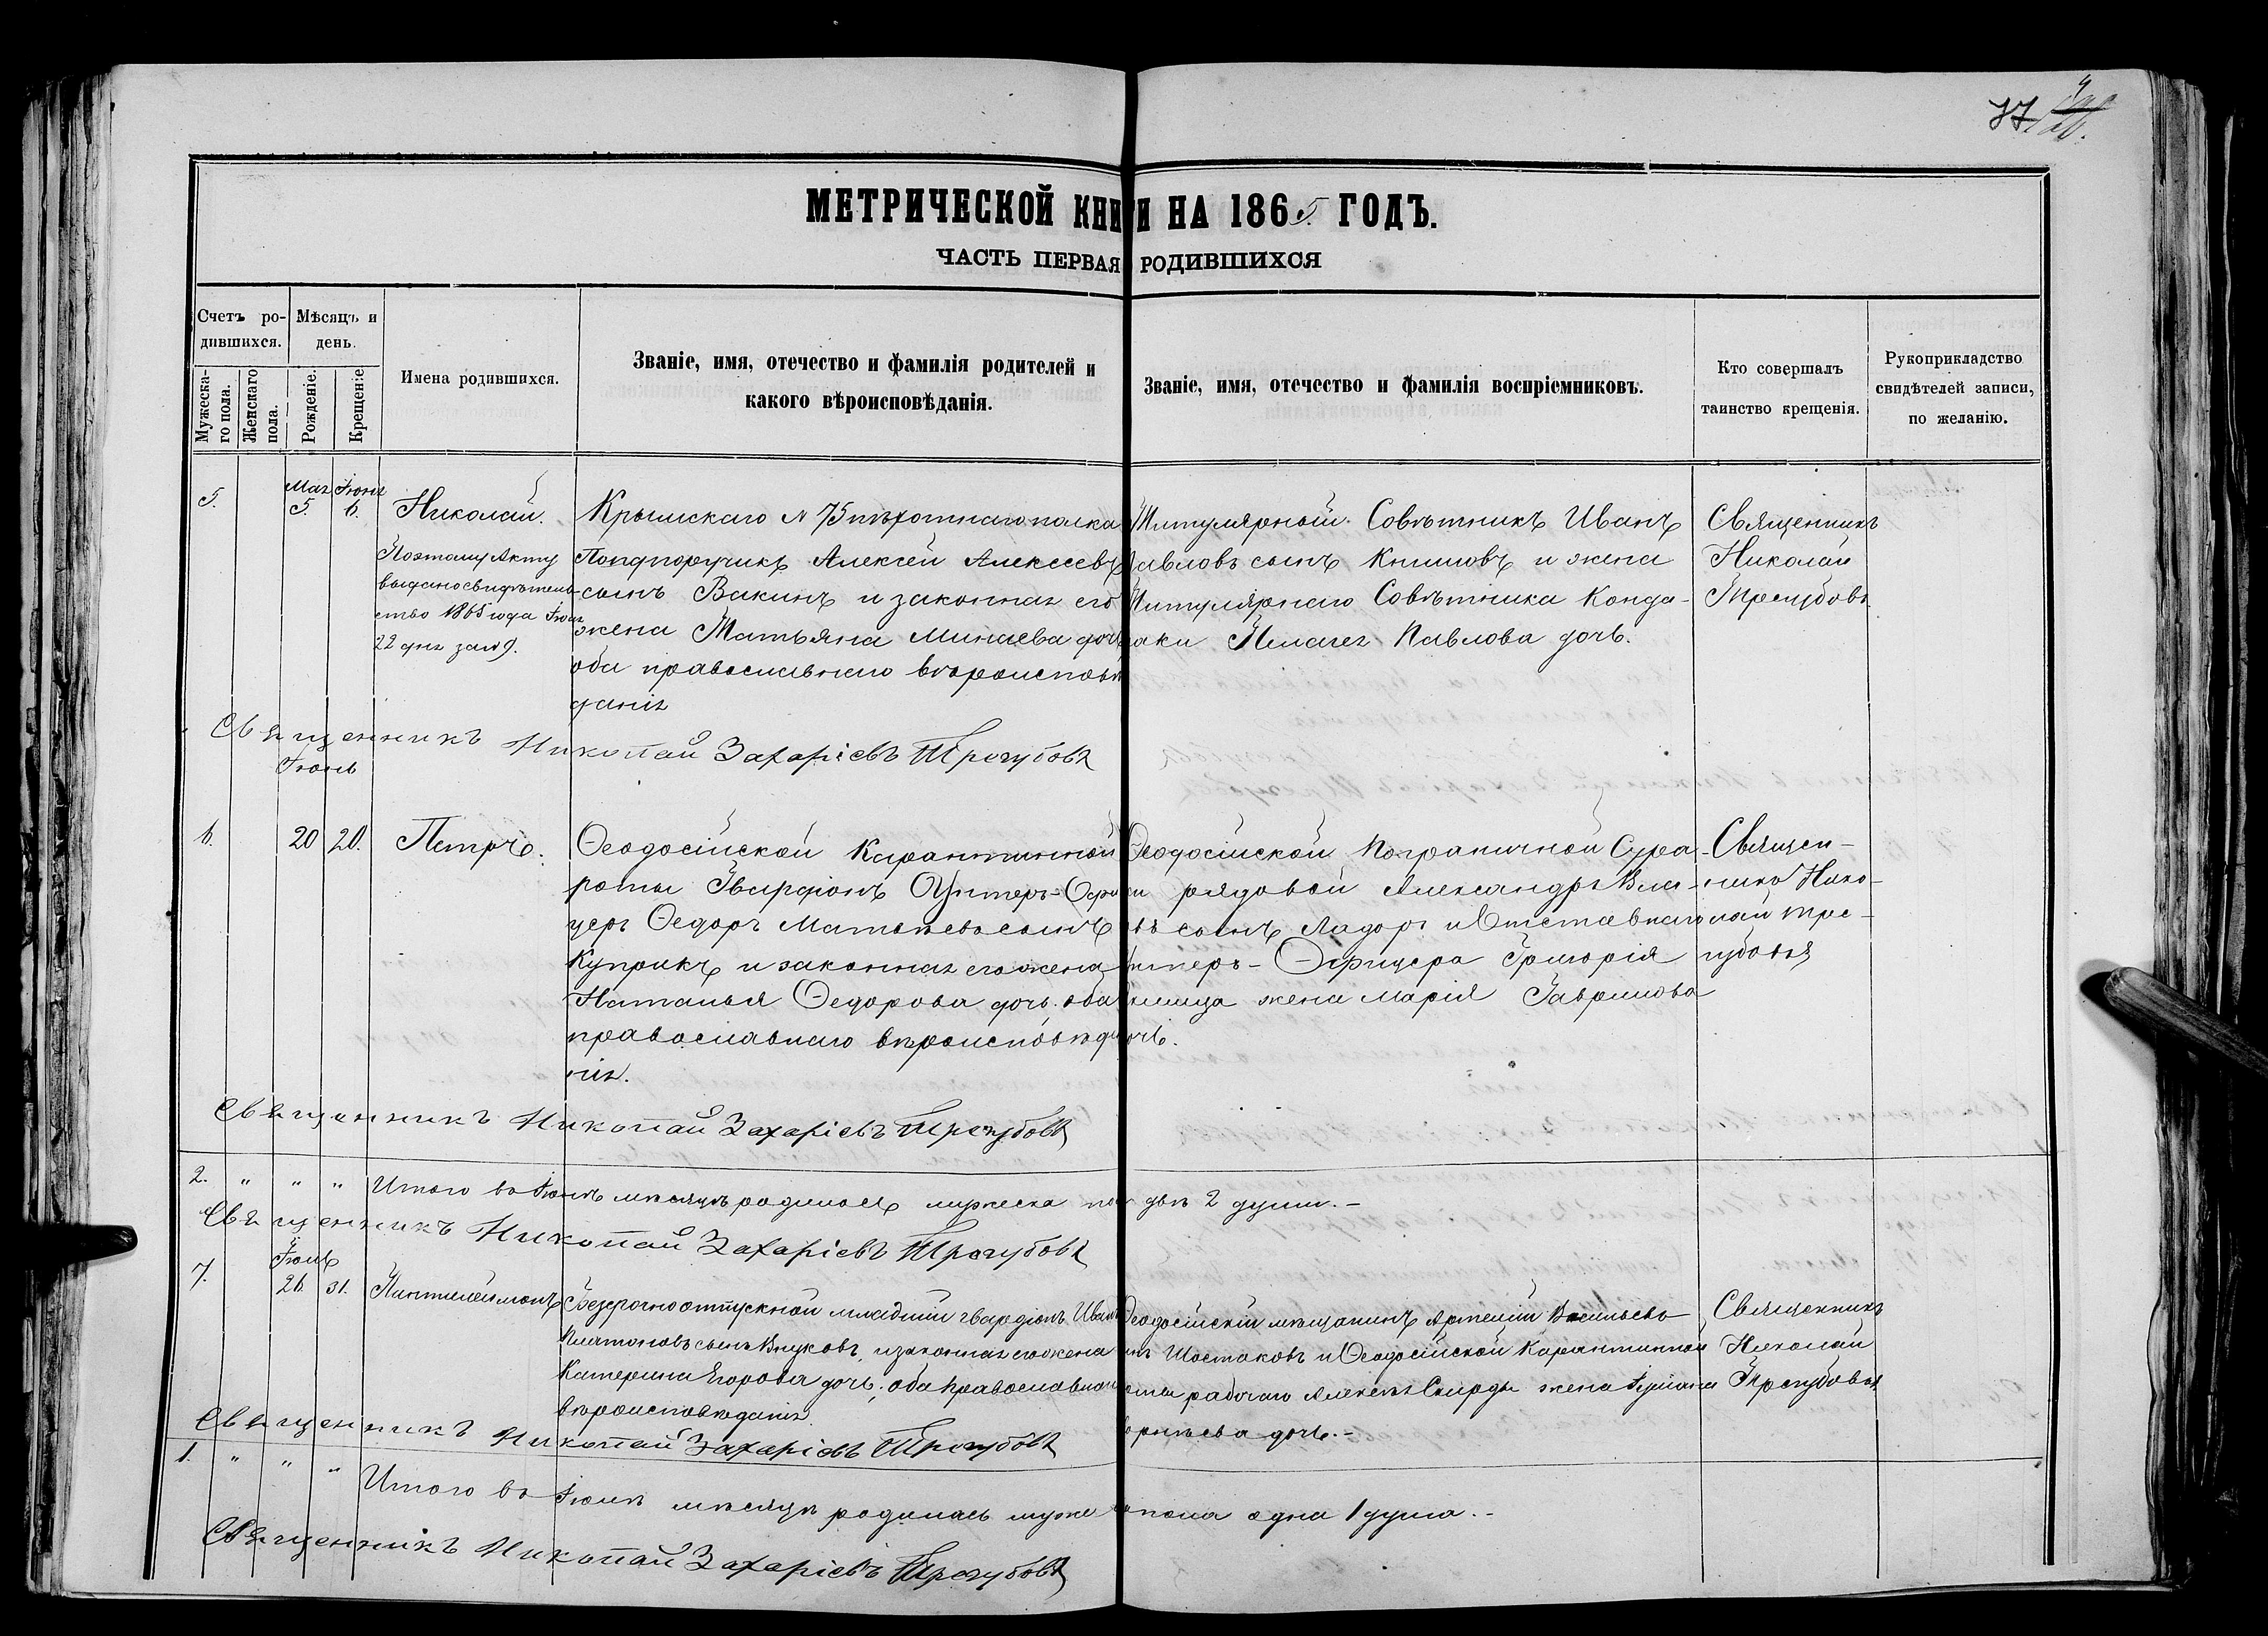 77
МЕТРИЧЕСКОЙ КНИГИ НА 1865 ГОДЪ.
ЧАСТЬ ПЕРВАЯ РОДИВШИХСЯ
Счетъ ро-
дившихся.
Мужеска-
го пола.
Женскаго
пола.
Мѣсяцъ и
день.
Рожденіе.
Крещеніе.
Имена родившихся.
Званіе, имя, отечество и фамилія родителей и
какого вѣроисповѣданія.
Званіе, имя, отечество и фамилія воспріемниковъ.
Кто совершалъ
таинство крещенія.
Рукоприкладство
свидѣтелей записи,
по желанію.
5.
Мая Іюня
5. 6.
Николай.
Поэтому Акту
выдано свидѣтель-
ство 1865 года Іюня
22 дня за № 9.
Крымскаго № 75 пѣхотнаго полка
Подпоручикъ Алексѣй Алексеевъ
сынъ Вакинъ и законная его
жена Татьяна Минаева дочь
оба православнаго вѣроисповѣ
данія
Титулярный Совѣтникъ Иванъ
Павловъ сынъ и жена
Титулярнаго Совѣтника Конда-
раки Пелагея Павлова дочь.
Священникъ
Николай
Трегубовъ
Священникъ Николай Захаріевъ Трегубовъ
Іюнь
6.
20 20.
Петръ.
Ѳеодосійской Карантинной
роты Гвардіонъ Унтеръ-Офи
церъ Ѳедоръ Матвѣевъ сынъ
Куприкъ и законная его жена
Наталья Ѳедорова дочь, оба
православнаго вѣроисповѣда
нія.
Ѳеодосійской Пограничной Стра-
жи рядовой Александръ
въ сынъ Ладоръ и Отставнаго
Унтеръ-Офицера Григорія
жена Марія Гаврилова
дочь.
Священ-
никъ Нико-
лай Тре-
губовъ
Священникъ Николай Захаріевъ Трегубовъ
2. " " " Итого въ Іюнѣ мѣсяцѣ родилось мужеска пола двѣ 2 души. -
Священникъ Николай Захаріевъ Трегубовъ
Іюль
7.
26 31.
Пантилеймонъ
Безсрочноотпускной младшій гвардіонъ Иванъ
Платоновъ сынъ Внуковъ, и законная его жена
Катерина Егорова дочь; оба православнаго
вѣроисповѣданія.
Ѳеодосійскій мѣщанинъ Артемій Васильевъ
сынъ Шостаковъ и Ѳеодосійской Карантинной
роты рабочаго Алексѣя жена
дочь. -
Священникъ
Николай
Трегубовъ
Священникъ Николай Захаріевъ Трегубовъ
1. " " " Итого въ Іюлѣ мѣсяцѣ родилась мужеска пола одна 1 душа. -
Священникъ Николай Захаріевъ Трегубовъ